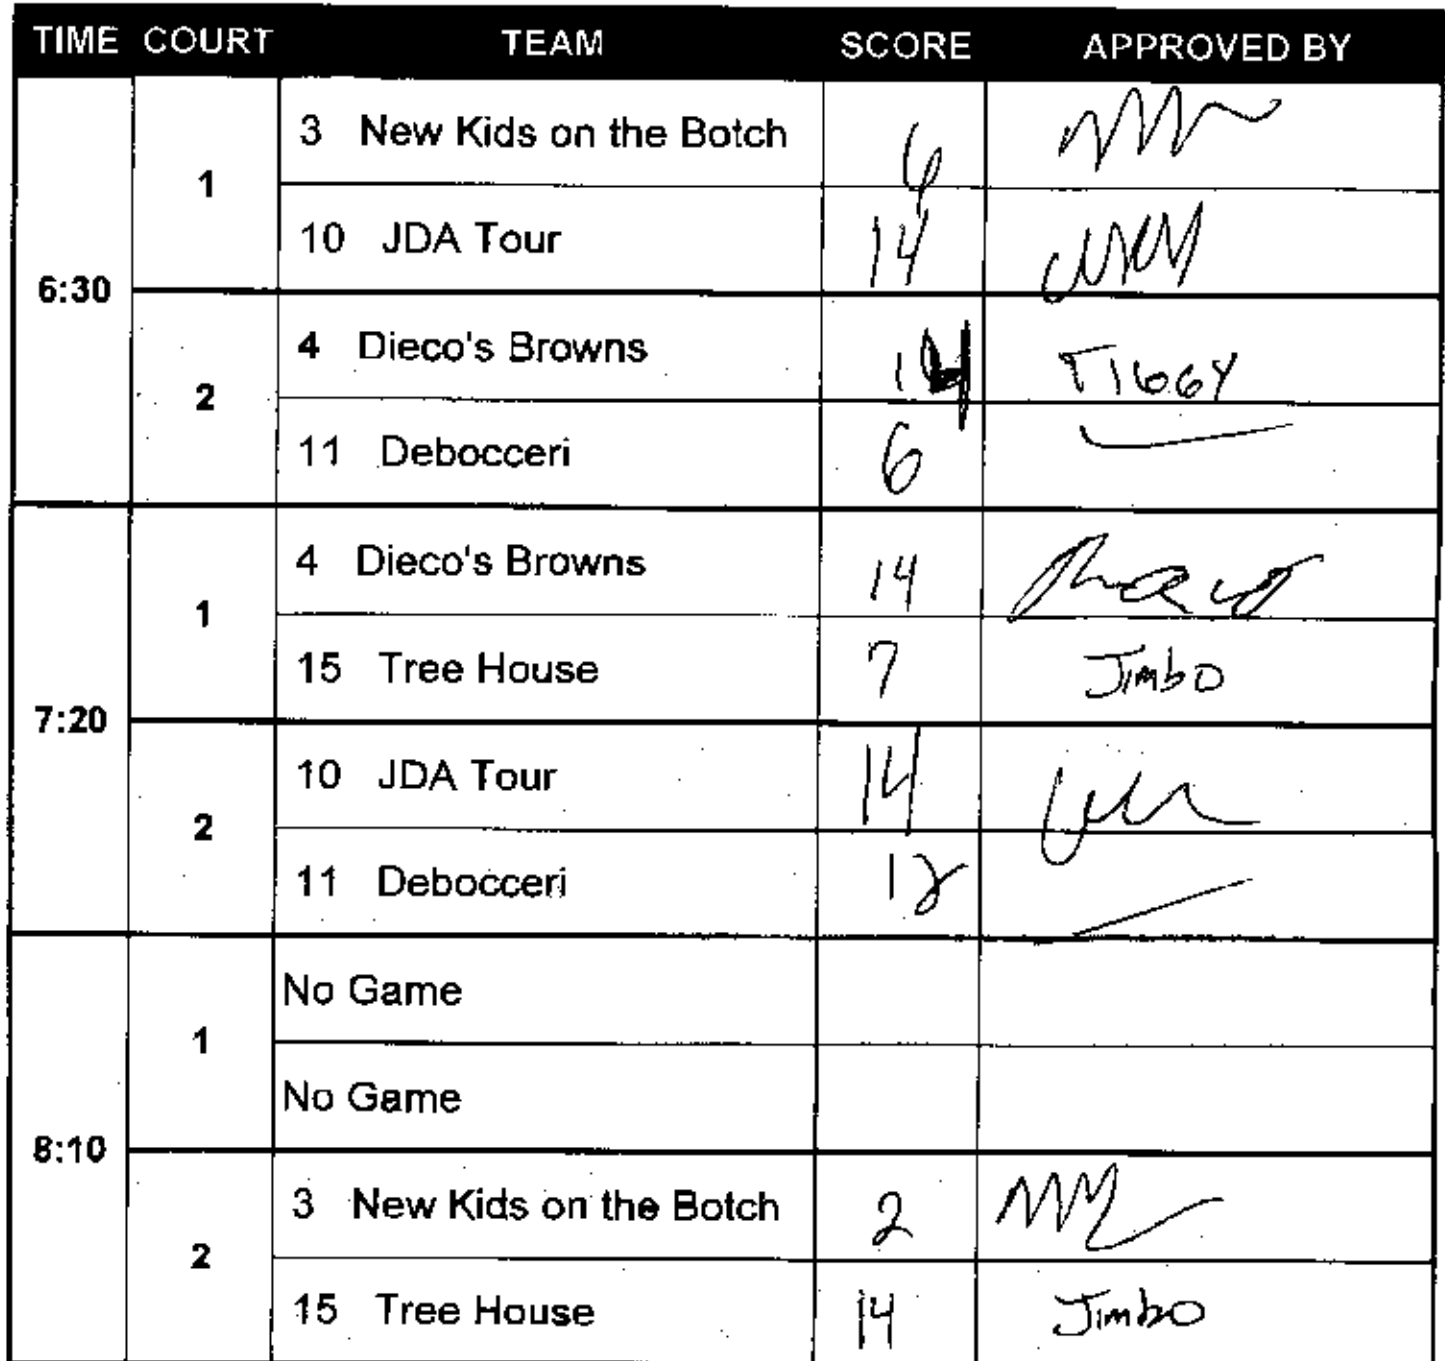 TIME COURT TEAM SCORE APPROVED BY
6:30
1
3 New Kids on the Botch 6
10 JDA Tour 14
2
4 Dieco's Browns 14
11 Debocceri 6
7:20
1
4 Dieco's Browns 14
15 Tree House 7 Jimbo
2
10 JDA Tour 14
11 Debocceri 12
8:10
1
No Game
No Game
2
3 New Kids on the Botch 2
15 Tree House 14 Jimbo